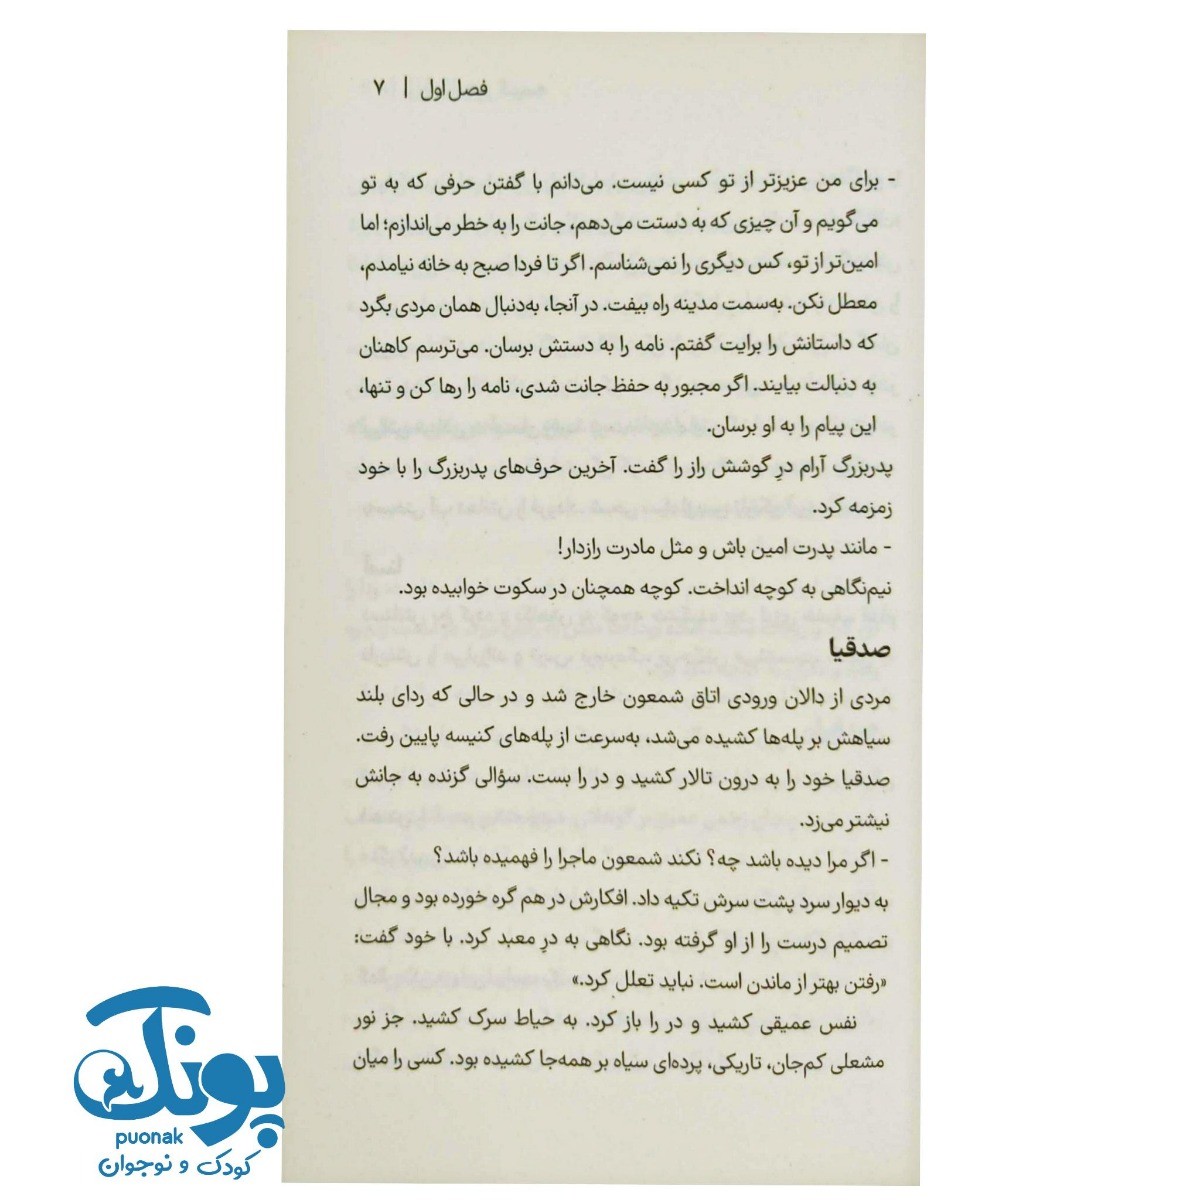 فصل اول | ۷
- برای من عزیزتر از تو کسی نیست. می‌دانم با گفتن حرفی که به تو
می‌گویم و آن چیزی که به دستت می‌دهم، جانت را به خطر می‌اندازم؛ اما
امین‌تر از تو، کس دیگری را نمی‌شناسم. اگر تا فردا صبح به خانه نیامدم،
معطل نکن. به‌سمت مدینه راه بیفت. در آنجا، به‌دنبال همان مردی بگرد
که داستانش را برایت گفتم. نامه را به دستش برسان. می‌ترسم کاهنان
به دنبالت بیایند. اگر مجبور به حفظ جانت شدی، نامه را رها کن و تنها،
این پیام را به او برسان.
پدربزرگ آرام درِ گوشش راز را گفت. آخرین حرف‌های پدربزرگ را با خود
زمزمه کرد.
- مانند پدرت امین باش و مثل مادرت رازدار!
نیم‌نگاهی به کوچه انداخت. کوچه همچنان در سکوت خوابیده بود.
صدقیا
مردی از دالان ورودی اتاق شمعون خارج شد و در حالی که ردای بلند
سیاهش بر پله‌ها کشیده می‌شد، به‌سرعت از پله‌های کنیسه پایین رفت.
صدقیا خود را به درون تالار کشید و در را بست. سؤالی گزنده به جانش
نیشتر می‌زد.
- اگر مرا دیده باشد چه؟ نکند شمعون ماجرا را فهمیده باشد؟
به دیوار سرد پشت سرش تکیه داد. افکارش در هم گره خورده بود و مجال
تصمیم درست را از او گرفته بود. نگاهی به درِ معبد کرد. با خود گفت:
«رفتن بهتر از ماندن است. نباید تعلل کرد.»
نفس عمیقی کشید و در را باز کرد. به حیاط سرک کشید. جز نور
مشعلی کم‌جان، تاریکی، پرده‌ای سیاه بر همه‌جا کشیده بود. کسی را میان
پونک
puonak
کودک و نوجوان